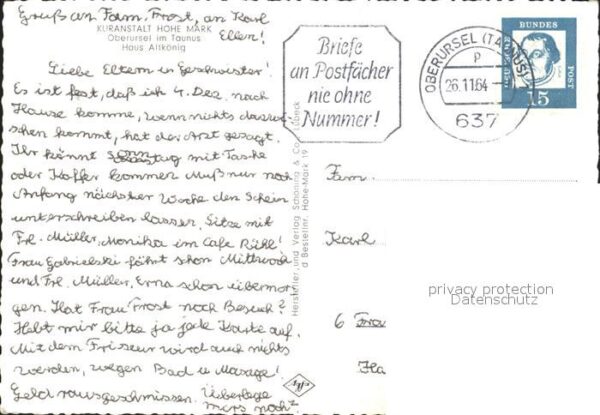 Gruß an Fam. Frost, an Karl
Ellen!
KURANSTALT HOHE MARK
Oberursel im Taunus
Haus Altkönig
Liebe Eltern u Geschwister!
Es ist fest, daß ich 4. Dez. nach
Hause komme, wenn nichts dazwi-
schen kommt, hat der Arzt gesagt.
Ihr könnt Sonntag mit Tasche
oder Koffer kommen. Muß nur noch
Anfang nächster Woche den Schein
unterschreiben lassen. Sitze mit
Frl. Müller, Monika im Cafe Rühl!
Frau Gabrielski fährt schon Mittwoch
und Frl. Müller, Erna schon übermor-
gen. Hat Frau Frost noch Besuch?
Hebt mir bitte ja jede Karte auf.
Mit dem Friseur wird auch nichts
werden, wegen Bad u Massage!
Geld rausgeschmissen. Überlege
mirs noch
Hersteller und Verlag Schöning & Co., Lübeck
Bestellnr. Hohe-Mark 19
Briefe
an Postfächer
nie ohne
Nummer!
OBERURSEL (TAUNUS)
p
26.11.64
637
DEUTSCHE
BUNDES
POST
15
Fam.
Karl
6 Frau
Ha
privacy protection
Datenschutz